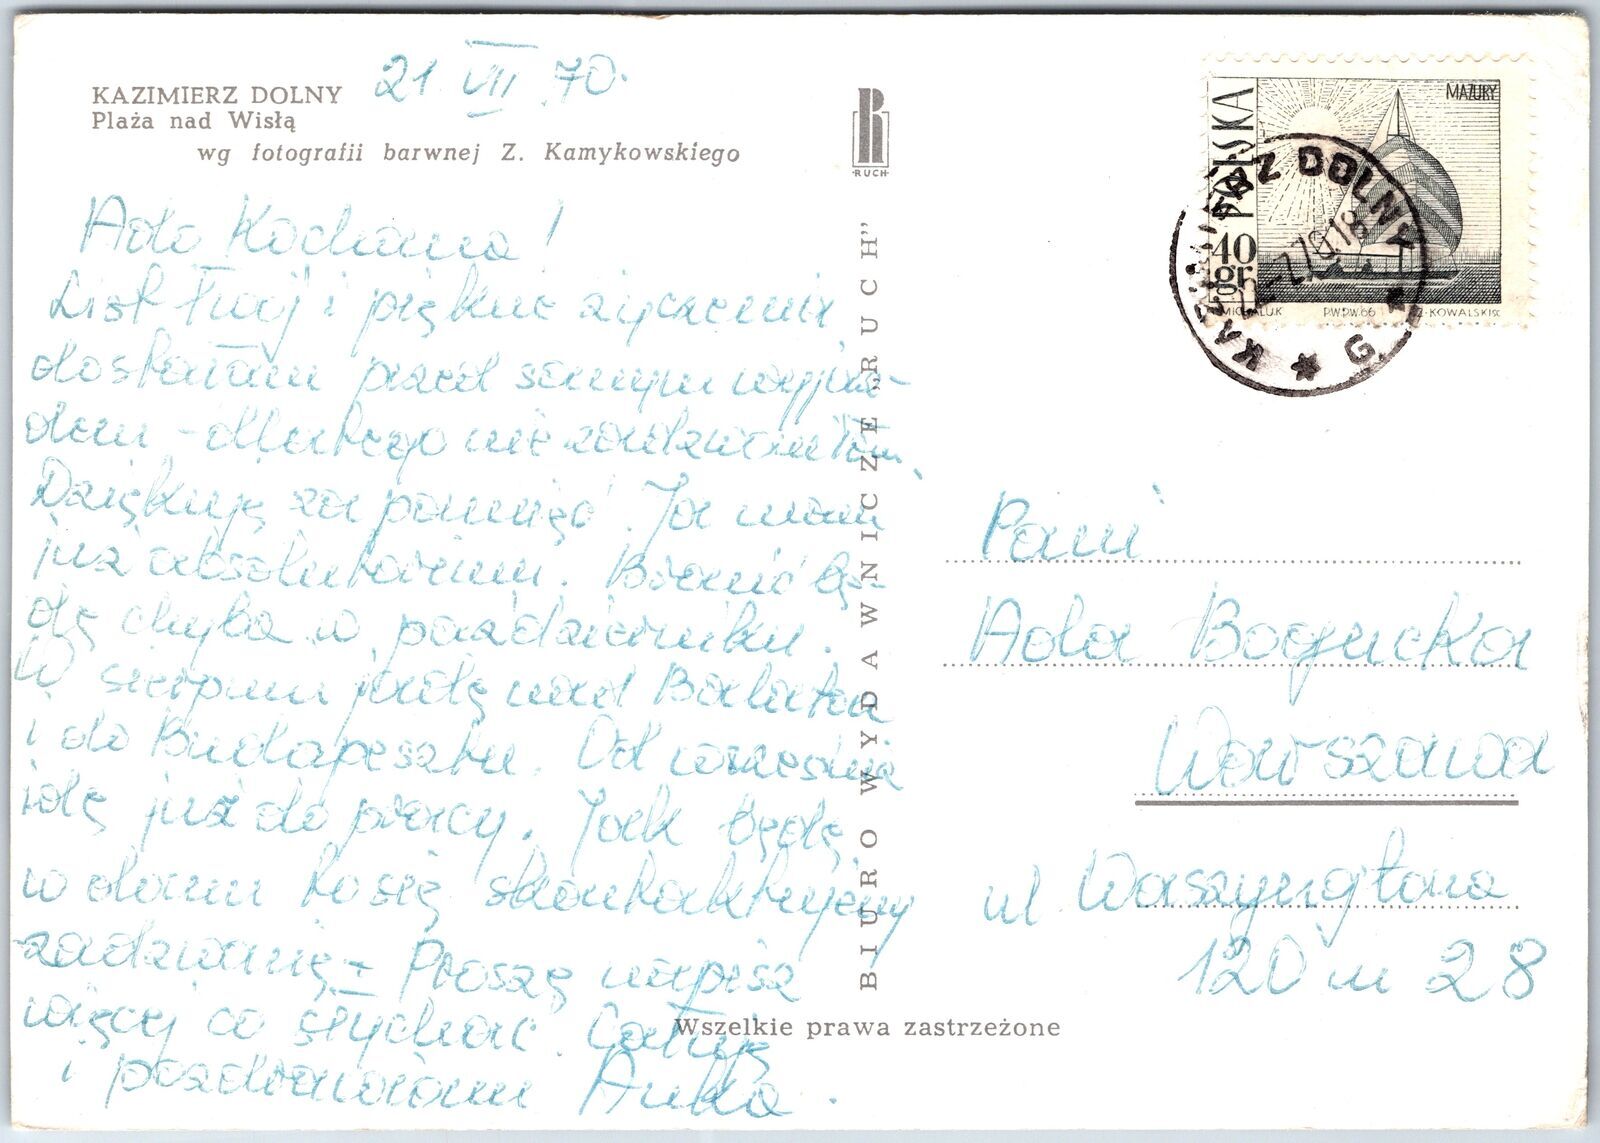 KAZIMIERZ DOLNY
Plaża nad Wisłą
wg fotografii barwnej Z. Kamykowskiego
21 VII 70.
Ado Kochana!
List Twój i piękne życzenia
dostałam przed samym wyjaz-
dem - dlatego nie zadzwoniłam.
Dziękuję za pamięć! Ja mam
już absolutorium. Bronić bę-
dę chyba w październiku.
W sierpniu jadę nad Balaton
i do Budapesztu. Od września
idę już do pracy. Jak będę
w domu to się skontaktujemy
zadzwonię - Proszę napisz
więcej co słychać. Całuję
i pozdrawiam Anka.
RUCH
BIURO WYDAWNICZE „RUCH"
Wszelkie prawa zastrzeżone
POLSKA
40
gr
MAZURY
S.MICHALUK P.W.P.W.66 Z-KOWALSKI sc
KAZIMIERZ DOLNY
7.70.18
G
Pani
Ada Bogucka
Warszawa
ul Waszyngtona
120 m 28